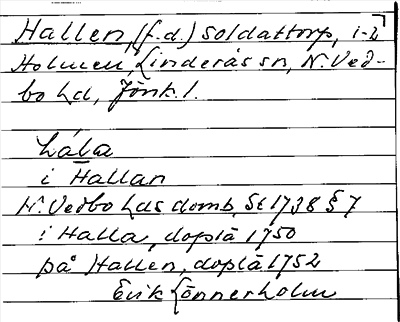 Hallen, (f.d.) soldattorp, i-2
Holmen, Linderås sn, N. Ved-
bo hd, Jönk. l.
hála
i Hallan
N. Vedbo hds domb. St 1738 § 7
i Halla, doplä 1750
på Hallen, doplä 1752
Erik Lönnerholm